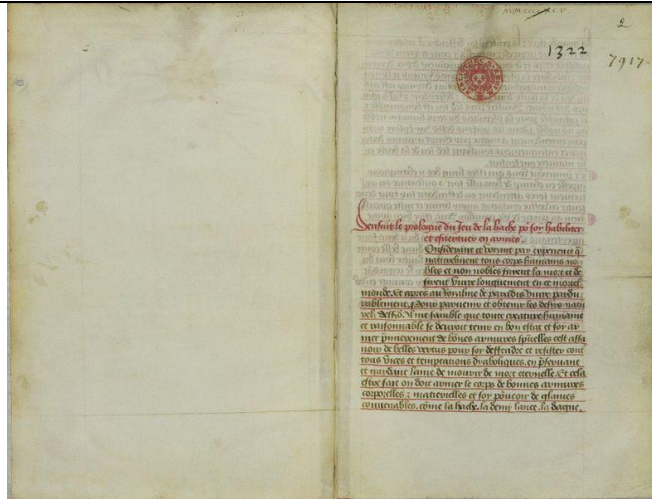 2
1322
7917.
Sensuit le prologue du Jeu de la hache po soy habiliter
et exerciter en armes.
Considerant et voyant par experience q
naturelment tous corps humains no
bles et non nobles fuyent la mort et de
sirent vivre longuement en ce mortel
monde. Et apres au Royaulme de paradis vivre pardu
rablement. Pour parvenir et obtenir les desirs natu
relz dessusd. Il me samble que toute creature humaine
et raisonnable se devroit tenir en bon estat et soy ar
mer premierement de bones armures spuelles cest assa
voir de belles vertus pour soy deffendre et resister cont
tous vices et temptations dyaboliques. en pservant
et gardant lame de mourir de mort eternelle. Et cela
estre fait on doit armer le corps de bonnes armures
corporelles z materielles et soy pourveoir de glaives
convenables. come la hache. la demy lance. la dague.